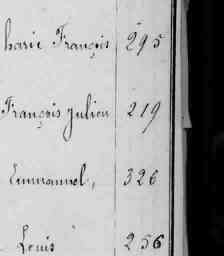 Marie François 295
François Julien 219
Emmanuel, 326
Louis 256